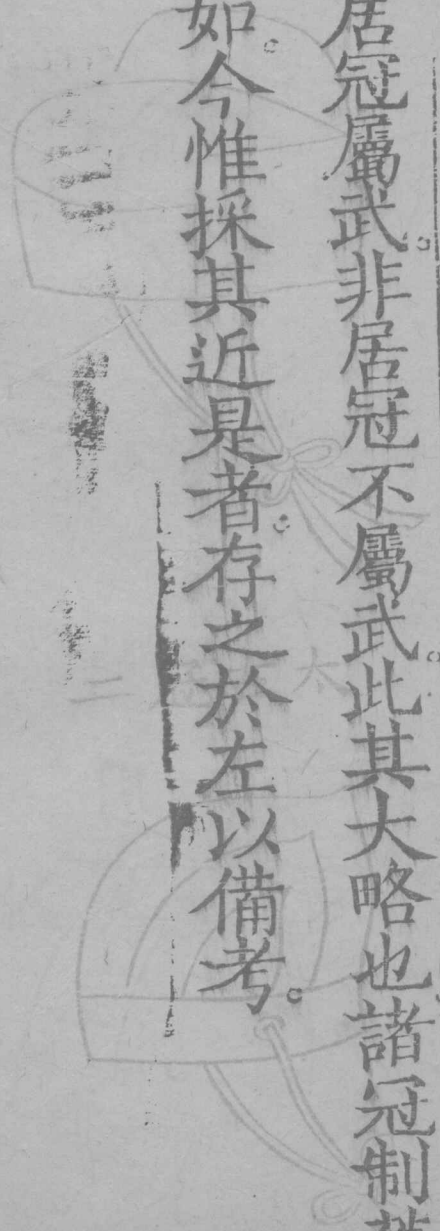 居冠屬武。非居冠不屬武。此其大略也。諸冠制
如。今惟採其近是者。存之於左以備考。